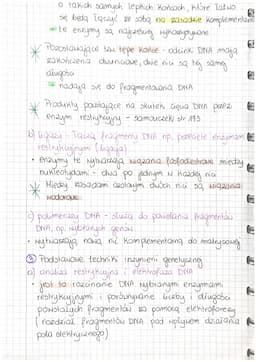 o takich samych lepkich końcach, które łatwo
się będą łączyć ze sobą na zasadzie komplementarn
te enzymy są najczęściej wykorzystywane
Pozostawiające tzw. tępe końce - odcinki DNA mają
zakończenia dwuniciowe, dwie nici są tej samej
długości
nadają się do fragmentowania DNA
Produkty powstające na skutek cięcia DNA przez
enzym restrykcyjny - samouczek str 193
b) ligazy - łączą fragmenty DNA np. przecięte enzymami
restrykcyjnymi (ligacja)
• enzymy te wytwarzają wiązania fosfodiestrowe między
nukleotydami - dwa po jednym w każdej nici
Między zasadami azotowymi dwóch nici są wiązania
wodorowe
c) polimerazy DNA - służą do powielania fragmentów
DNA, np. wybranych genów
• wytwarzają nową nić komplementarną do matrycowej
③ Podstawowe techniki inżynierii genetycznej
a) analiza restrykcyjna i elektroforeza DNA
• jest to rozcinanie DNA wybranym enzymem
restrykcyjnym i porównanie liczby i długości
powstałych fragmentów za pomocą elektroforezy
(rozdział fragmentów DNA pod wpływem działania
pola elektrycznego)